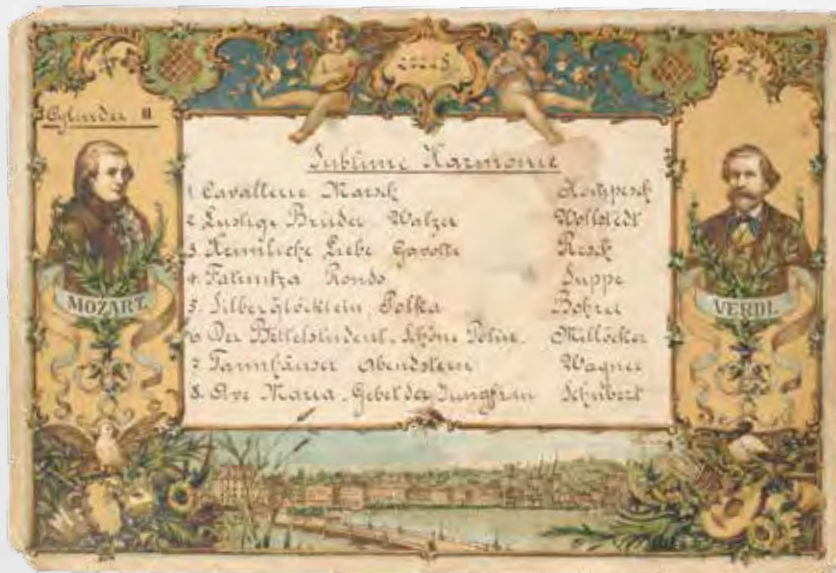 Cylinder II
Sublime Harmonie
1. Cavallerie Marsch
2. Lustige Brüder Walzer Vollstedt
3. Heimliche Liebe Gavotte Resch
4. Fatinitza Rondo Suppe
5. Silberglöcklein, Polka
6. Der Bettelstudent, Schöne Polin. Millöcker
7. Tannhäuser Abendstern Wagner
8. Ave Maria. Gebet der Jungfrau Schubert
MOZART.
VERDI.